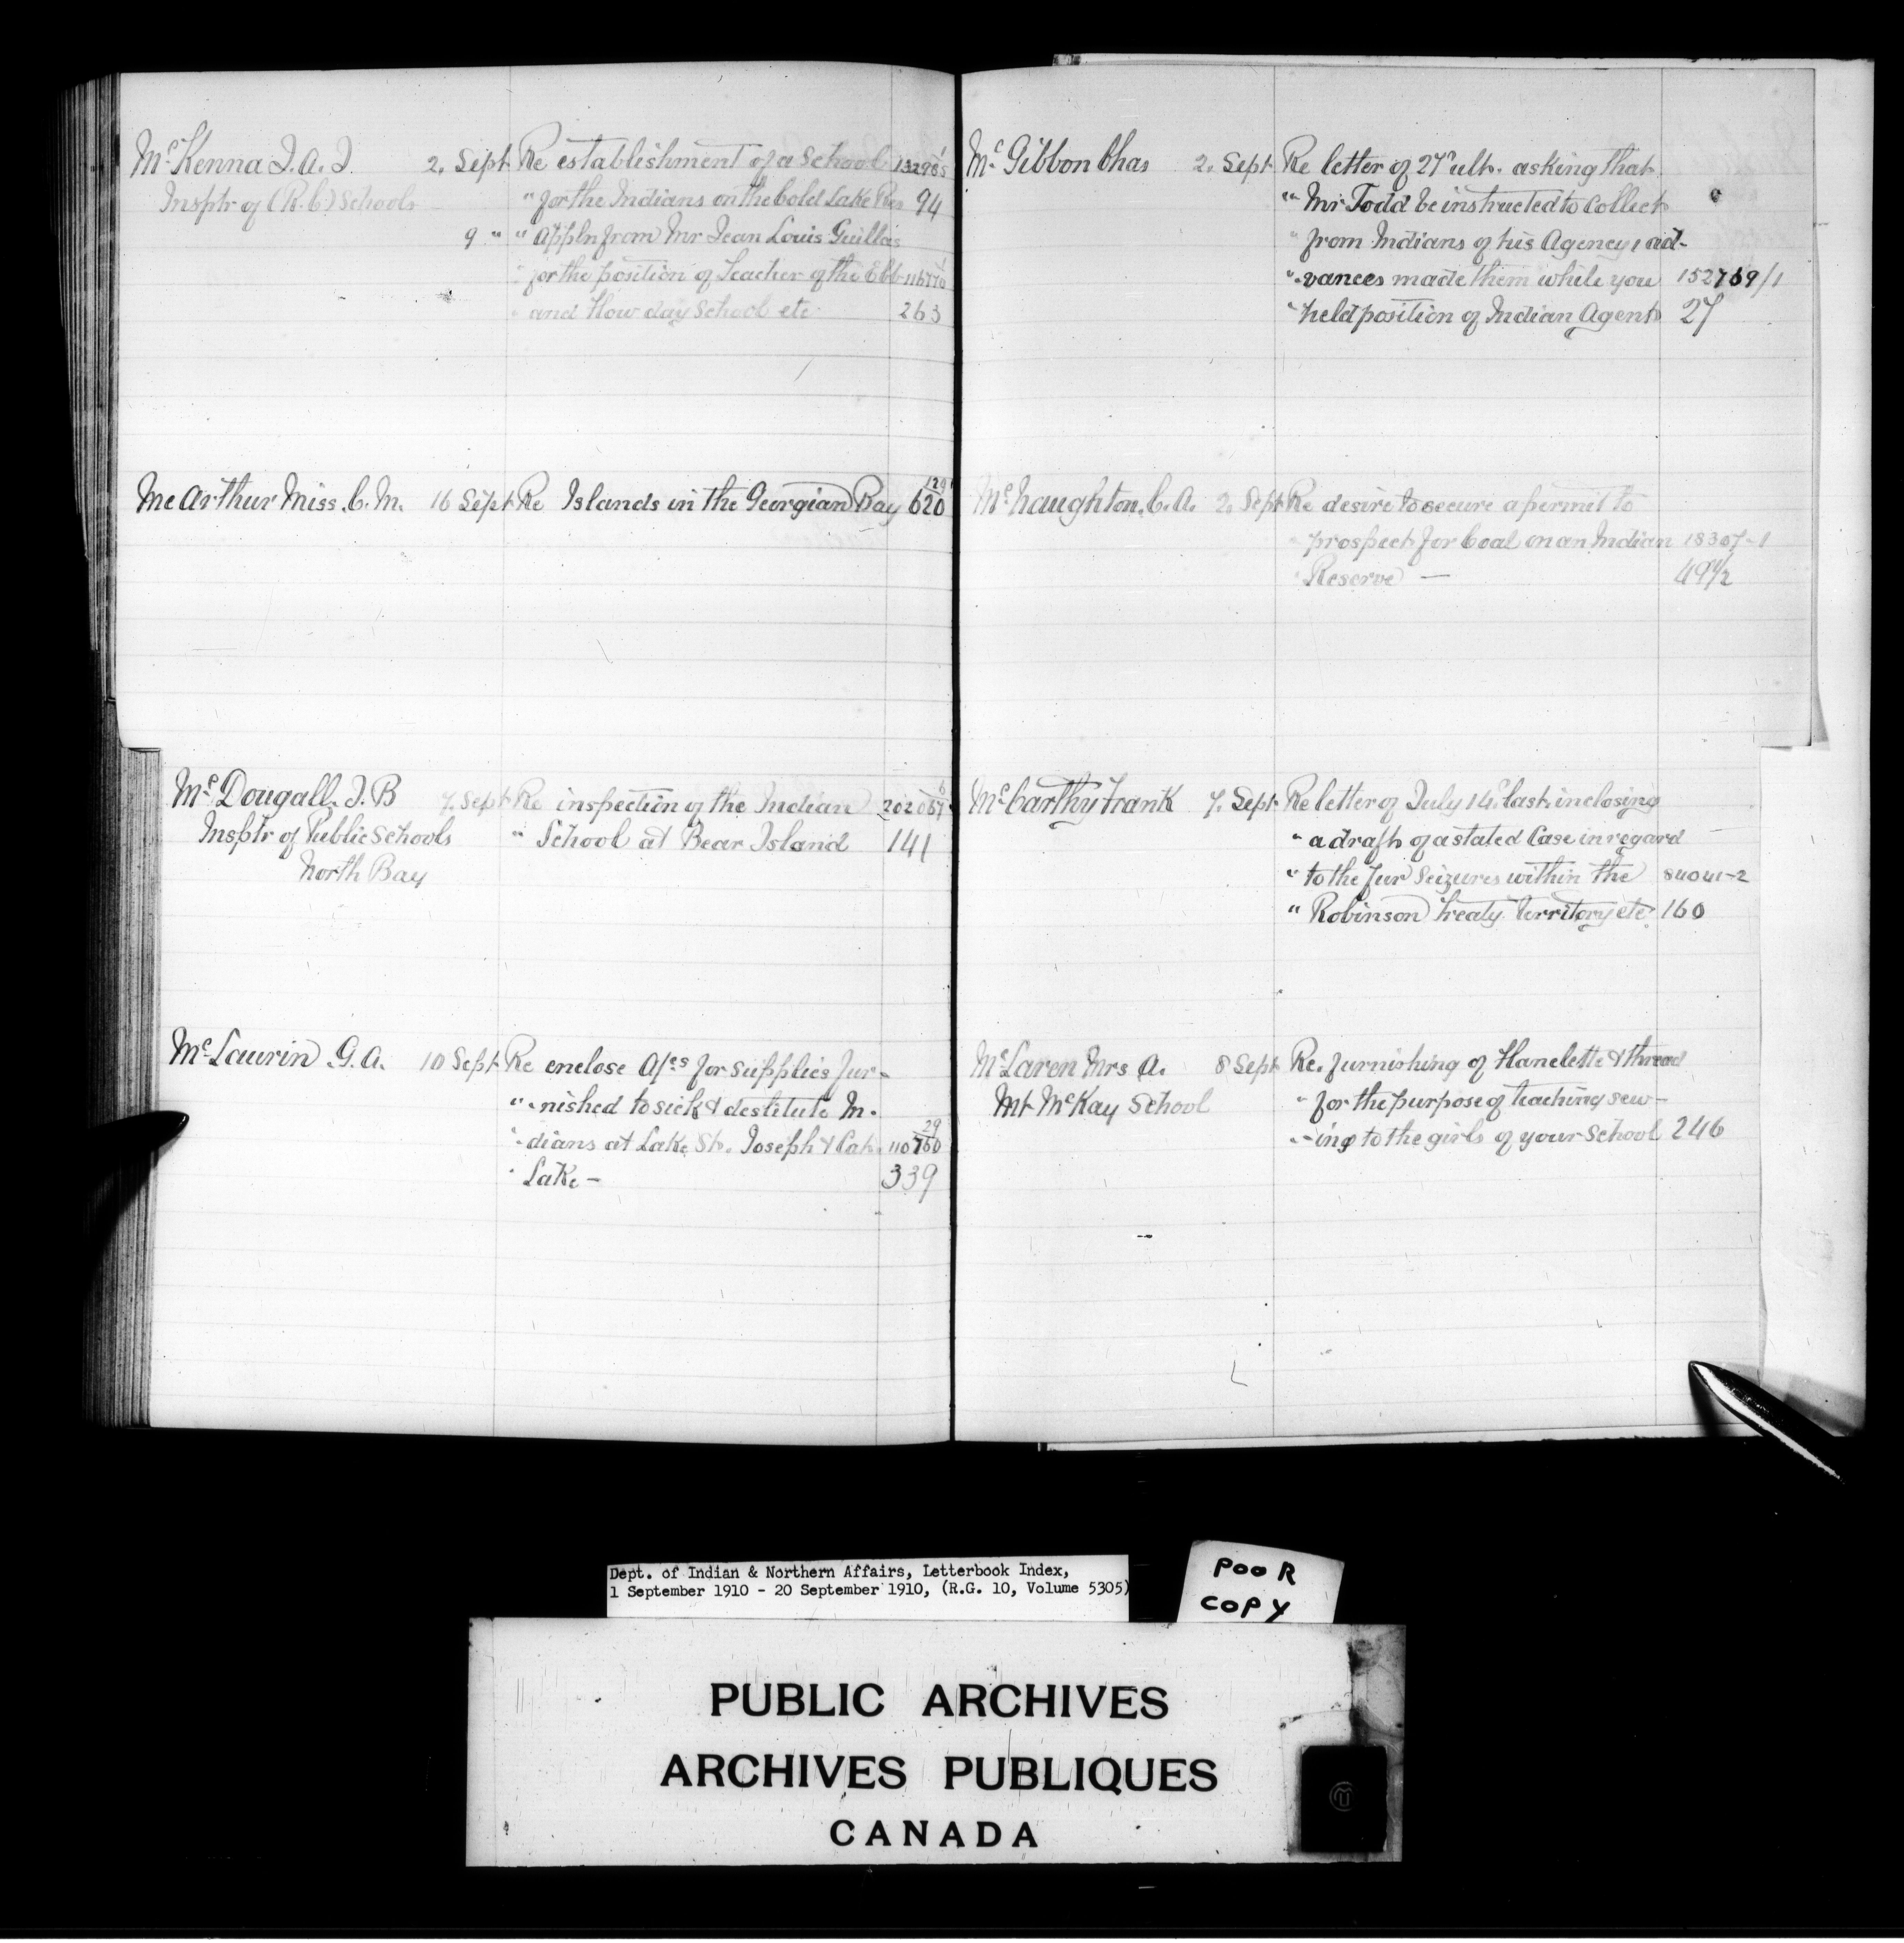 McKenna J. A. J. 2. Sept Re establishment of a School
Insptr of (R.C) Schools " for the Indians on the Cold Lake Res 94
9 " " appln from Mr Jean Louis Guillas
" for the position of Teacher of the Ebb
" and Flow day School etc 263
McArthur Miss. C. M. 16 Sept Re Islands in the Georgian Bay 129 620
McDougall. J. B 7. Sept Re inspection of the Indian 202067/6
Insptr of Public Schools " School at Bear Island 141
North Bay
McLaurin G. A. 10 Sept Re enclose A/cs for supplies fur-
" -nished to sick & destitute In-
" -dians at Lake St. Joseph & Cat. 110760/29
" Lake - 339
McGibbon Chas 2. Sept Re letter of 27 ult. asking that
" Mr Todd be instructed to collect
" from Indians of his Agency, ad-
" -vances made them while you 152769/1
" held position of Indian Agent 27
McNaughton. C. A. 2. Sept Re desire to secure a permit to
" prospect for Coal on an Indian 18307-1
" Reserve - 49½
McCarthy Frank 7. Sept Re letter of July 14 last. inclosing
" a draft of a stated Case in regard
" to the fur Seizures within the 84041-2
" Robinson Treaty Territory etc 160
McLaren Mrs A. 8 Sept Re. furnishing of Flanelette & thread
Mt McKay School " for the purpose of teaching sew-
" -ing to the girls of your School 246
Dept. of Indian & Northern Affairs, Letterbook Index,
1 September 1910 - 20 September 1910, (R.G. 10, Volume 5305)
POOR
COPY
PUBLIC ARCHIVES
ARCHIVES PUBLIQUES
CANADA